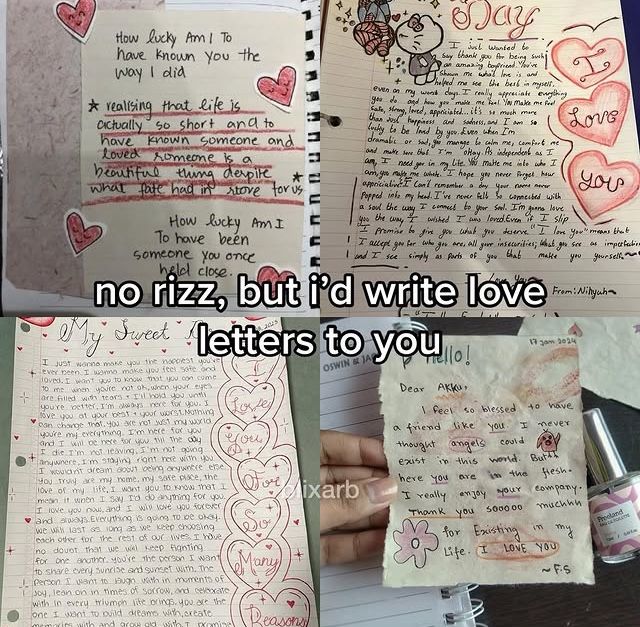 How lucky Am I To
have known you the
way I did
realising that life is
actually so short and to
have known someone and
loved someone is a
beautiful thing despite
what fate had in store for us
How lucky Am I
To have been
someone you once
held close.
Day
I just wanted to
say thank you for being such
an amazing boyfriend. You've
shown me what love is and
helped me see the best in myself,
even on my worst days. I really appreciate everything
you do and how you make me feel. You make me feel
safe, strong, loved, appreciated.. it's so much more
than just happiness and sadness, and I am so
lucky to be loved by you. Even when I'm
dramatic or sad, you manage to calm me, comfort me
and make sure that I'm okay. As independent as I
am, I need you in my life. You make me into who I
am, you make me whole. I hope you never forget how
appreciative I can't remember a day your name never
popped into my head. I've never felt so connected with
a soul the way I connect to your soul. I'm gonna love
you the way I wished I was loved. Even if I slip
I promise to give you what you deserve. "I love you" means that
I accept you for who you are, all your insecurities, what you see as imperfection
and I see simply as parts of you that make you yourself
I
Love
you
From: Nihyah
no rizz, but i'd write love
letters to you
My Sweet
I just wanna make you the happiest you've
ever been. I wanna make you feel safe and
loved. I want you to know that you can come
to me when you're not ok, when your eyes
are filled with tears. I'll hold you until
you're better. I'm always here for you. I
love you at your best + your worst. Nothing
can change that. you are not just my world
you're my everything. I'm here for you
and I will be here for you till the day
I die. I'm not leaving, I'm not going
anywhere, I'm staying right here with you
I wouldn't dream about being anywhere else
You truly are my home, my safe place, the
love of my life, I want you to know that I
mean it when I say I'd do anything for you
I love you now, and I will love you forever
and always. Everything is going to be okay.
we will last as long as we keep choosing
each other for the rest of our lives. I have
no doubt that we will keep fighting
for one another. you're the person I want
to share every sunrise and sunset with. The
person I want to laugh with in moments of
joy, lean on in times of sorrow, and celebrate
with in every triumph life brings. you are the
one I want to build dreams with, create
memories with and grow old with. I promise
I
Love
you
For
So
Many
Reasons
OSWIN & JA
Hello!
17 Jan 2024
Dear AKKU,
I feel so blessed to have
a friend like you I never
thought angels could
exist in this world. Buttt
here you are in the flesh.
I really enjoy your company.
Thank you sooooo muchhh
for Existing in my
Life. I LOVE YOU
~F.S